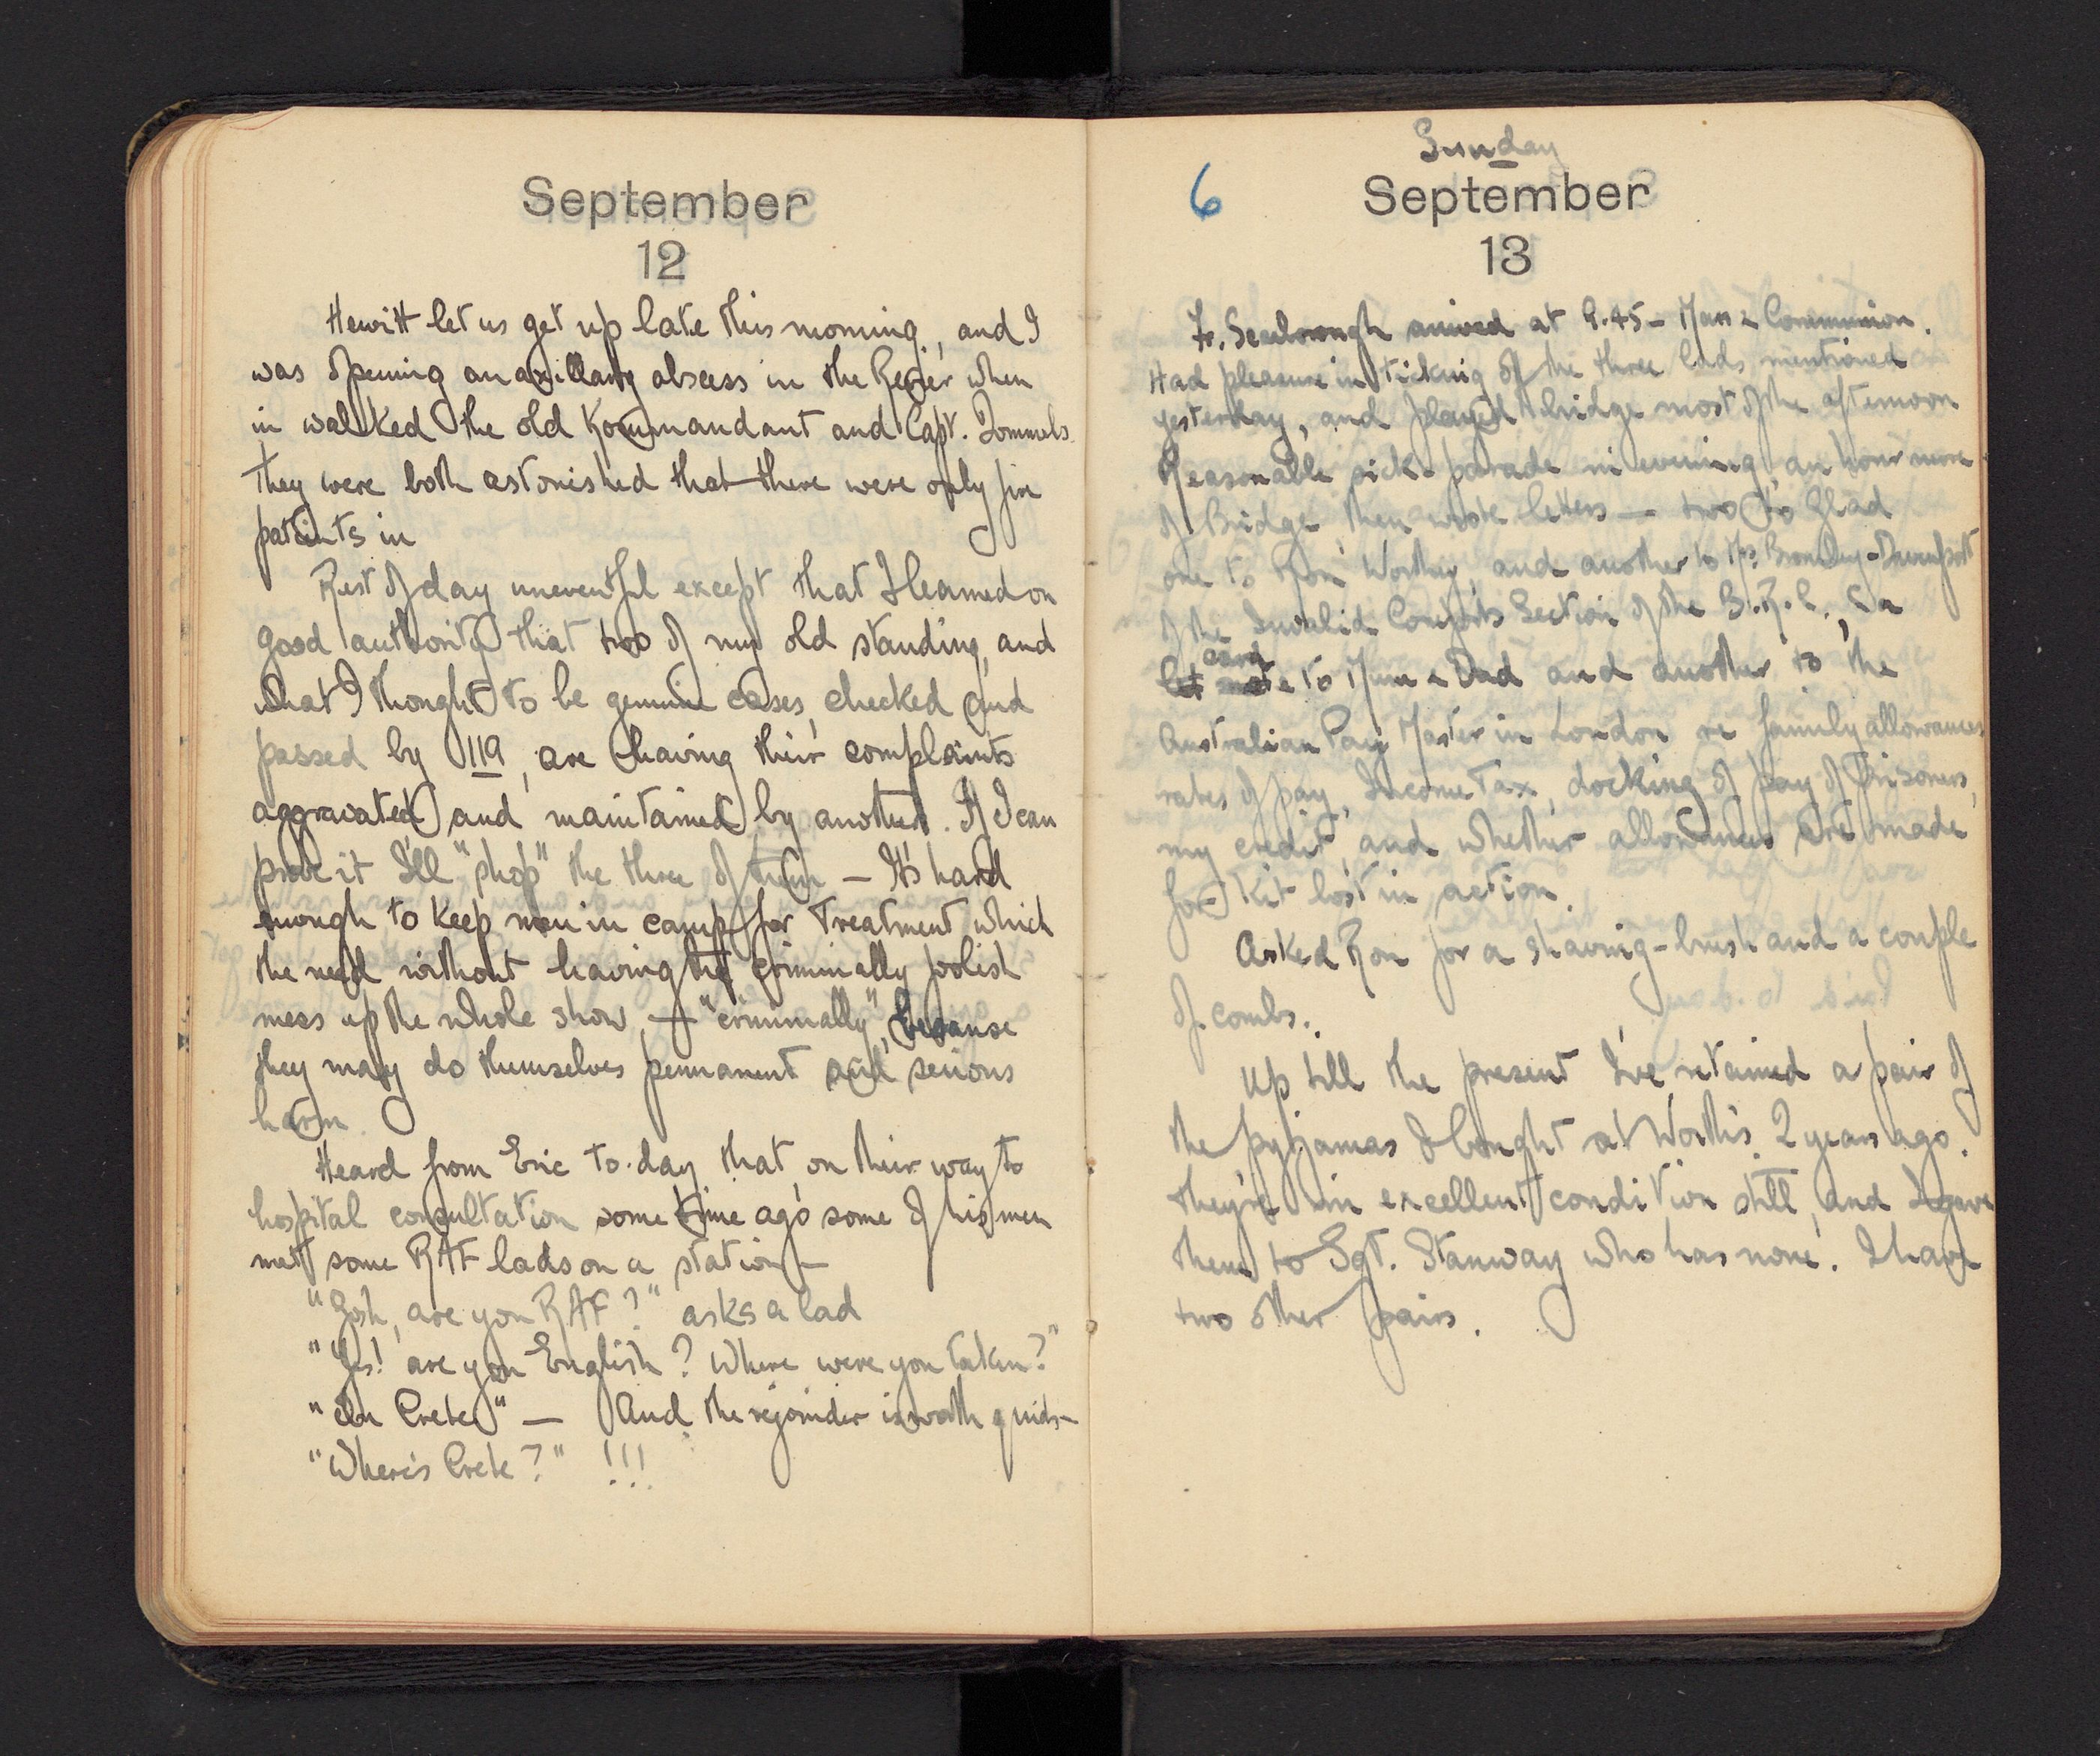 September
12
Hewitt let us get up late this morning, and I
was opening an axillary abscess in the Revier when
in walked the old Kommandant and Capt.
They were both astonished that there were only five
patients in
Rest of day uneventful except that I learned on
good authority that two of my old standing, and
what I thought to be genuine cases, checked and
passed by 119, are having their complaints
aggravated and maintained by another. If I can
prove it I'll "shop" the three of them — It's hard
enough to keep men in camp for treatment which
the need without having the criminally foolish
mess up the whole show, — "criminally", because
they may do themselves permanent and serious
harm.
Heard from Eric to-day that, on their way to
hospital consultation some time ago some of his men
met some RAF lads on a station —
"Gosh, are you RAF?" asks a lad
"Yes! are you English? Where were you taken?"
"In Crete" — And the rejoinder is worth quids —
"Where's Crete?" !!!
Sunday
6 September
13
Fr. arrived at 9.45 – Mass & Communion.
Had pleasure in ticking off the three lads mentioned
yesterday, and played bridge most of the afternoon
Reasonable sick-parade in evening, an hour more
of Bridge, then wrote letters — two to Glad
one to Ron Worthy, and another to Mrs Bromley-Davenport
of the Invalid Comforts Section of the B.R.C., & a
card
to Mum & Dad and another to the
Australian Pay Master in London re family allowances
rates of pay, Income Tax, docking of pay of Prisoners,
my credit, and whether allowances are made
for Kit lost in action.
Asked Ron for a shaving-brush and a couple
of combs.
Up till the present I've retained a pair of
the pyjamas I bought at Worth's 2 years ago.
They're in excellent condition still, and I gave
them to Sgt. Stanway who has none. I have
two other pairs.